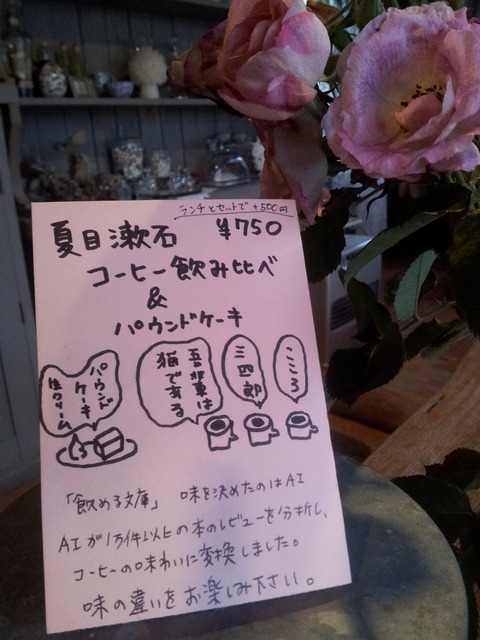 ランチとセットで+500円
夏目漱石 ¥750
コーヒー飲み比べ
&
パウンドケーキ
こころ
三四郎
吾輩は
猫である
パウンド
ケーキ
生クリーム
「飲める文庫」 味を決めたのはAI
AIが1万件以上の本のレビューを分析し、
コーヒーの味わいに変換しました。
味の違いをお楽しみ下さい。